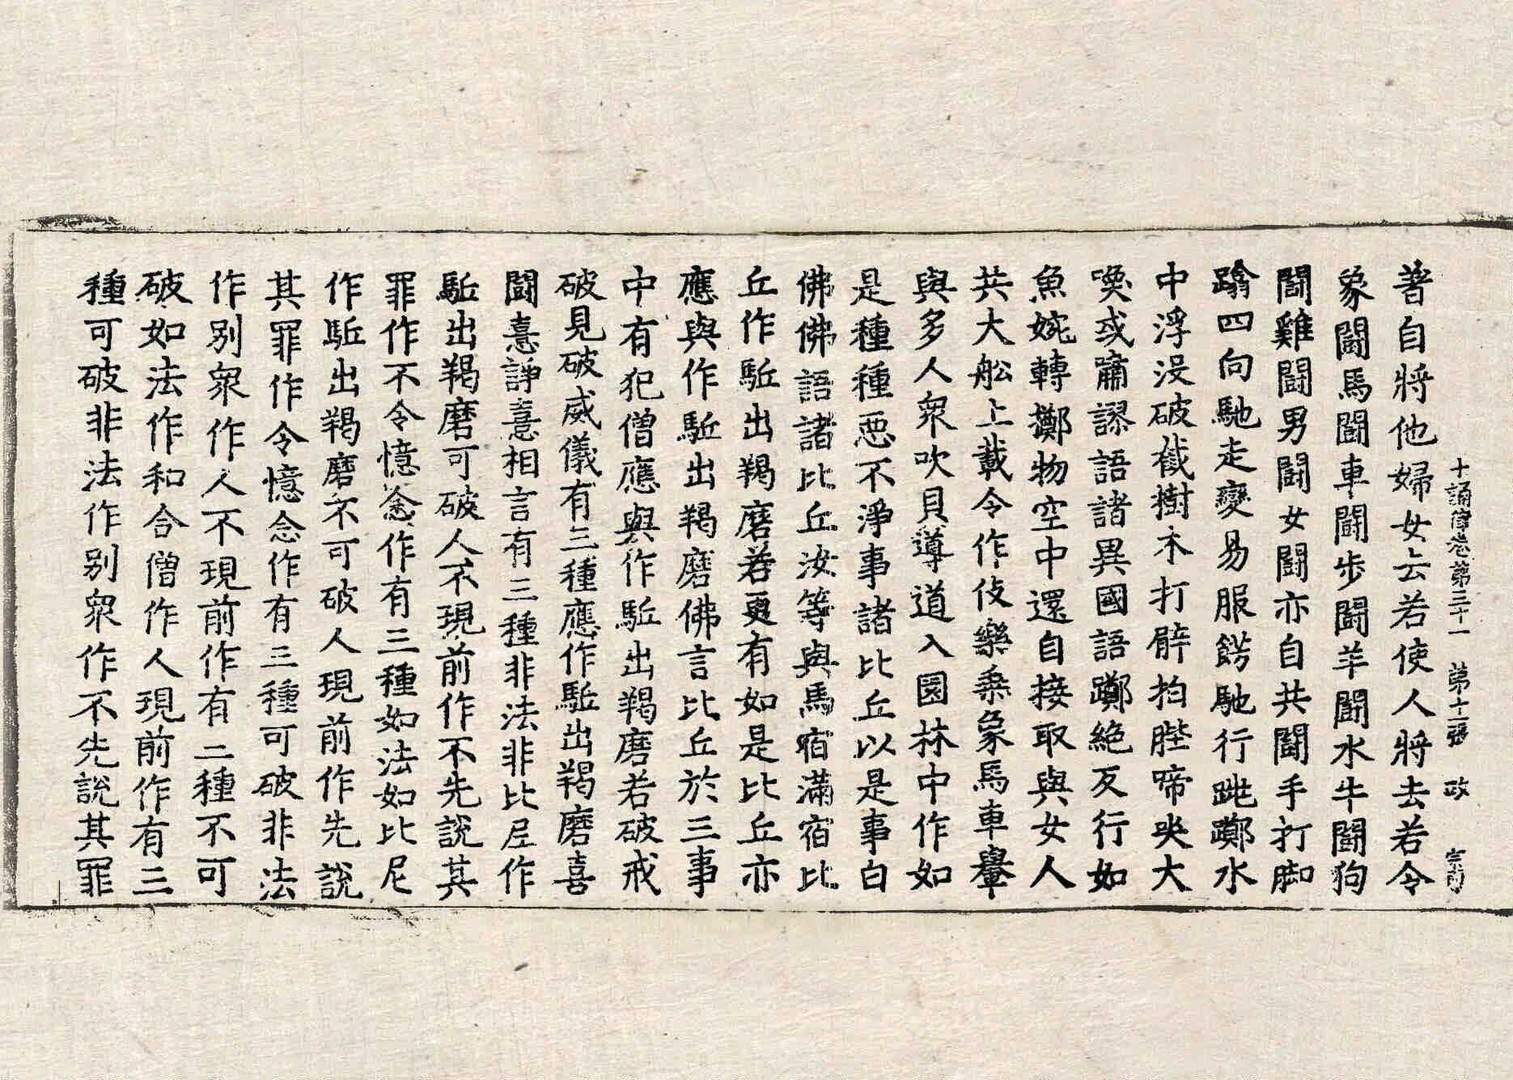 十誦律卷第三十一　第十二張　政　宗甫
著自將他婦女云若使人將去若令
象鬪馬鬪車鬪步鬪羊鬪水牛鬪狗
鬪雞鬪男鬪女鬪亦自共鬪手打脚
蹹四向馳走變易服餝馳行跳躑水
中浮没破截樹木打臂拍䏶啼哭大
喚或嘯謬語諸異國語躑絶反行如
魚婉轉擲物空中還自接取與女人
共大舩上載令作伎樂乘象馬車轝
與多人衆吹貝導道入園林中作如
是種種惡不淨事諸比丘以是事白
佛佛語諸比丘汝等與馬宿滿宿比
丘作駈出羯磨若更有如是比丘亦
應與作駈出羯磨佛言比丘於三事
中有犯僧應與作駈出羯磨若破戒
破見破威儀有三種應作駈出羯磨喜
鬪憙諍憙相言有三種非法非比尼作
駈出羯磨可破人不現前作不先說其
罪作不令憶念作有三種如法如比尼
作駈出羯磨不可破人現前作先說
其罪作令憶念作有三種可破非法
作別衆作人不現前作有二種不可
破如法作和合僧作人現前作有三
種可破非法作別衆作不先說其罪